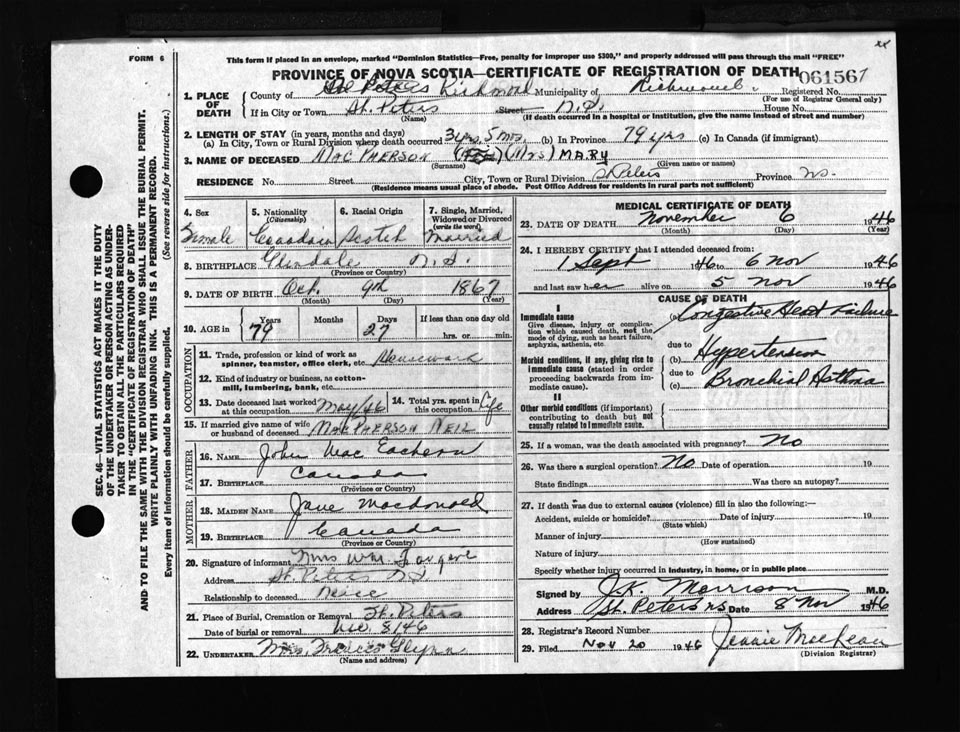 FORM 6
This form if placed in an envelope, marked "Dominion Statistics—Free, penalty for improper use $300," and properly addressed will pass through the mail "FREE"
PROVINCE OF NOVA SCOTIA—CERTIFICATE OF REGISTRATION OF DEATH
061567
1. PLACE OF DEATH
County of St Peters Richmond Municipality of Richmond Registered No.
(For use of Registrar General only)
If in City or Town St. Peters Street N.S. House No.
(Name) (If death occurred in a hospital or institution, give the name instead of street and number)
2. LENGTH OF STAY (in years, months and days)
(a) In City, Town or Rural Division where death occurred 3 yrs, 5 mos. (b) In Province 79 yrs (c) In Canada (if immigrant)
3. NAME OF DECEASED MacPHERSON (Mrs) MARY
(Surname) (Given name or names)
RESIDENCE No. Street City, Town or Rural Division St Peters Province N.S.
(Residence means usual place of abode. Post Office Address for residents in rural parts not sufficient)
4. Sex Female
5. Nationality (Citizenship) Canadian
6. Racial Origin Scotch
7. Single, Married, Widowed or Divorced (write the word) Married
8. BIRTHPLACE Glendale N.S.
(Province or Country)
9. DATE OF BIRTH Oct. 9th 1867
(Month) (Day) (Year)
10. AGE in Years 79 Months Days 27 If less than one day old hrs. or min.
OCCUPATION
11. Trade, profession or kind of work as spinner, teamster, office clerk, etc. Housework
12. Kind of industry or business, as cotton-mill, lumbering, bank, etc.
13. Date deceased last worked at this occupation May/46 14. Total yrs. spent in this occupation Life
15. If married give name of wife or husband of deceased MacPHERSON NEIL
FATHER
16. NAME John MacEachern
17. BIRTHPLACE Canada
(Province or Country)
MOTHER
18. MAIDEN NAME Jane Macdonald
19. BIRTHPLACE Canada
(Province or Country)
20. Signature of informant Mrs Wm
Address St. Peters N.S.
Relationship to deceased Neice
21. Place of Burial, Cremation or Removal St. Peters
Date of burial or removal 8/46
22. UNDERTAKER Mrs. Glynn
(Name and address)
MEDICAL CERTIFICATE OF DEATH
23. DATE OF DEATH November 6 1946
(Month) (Day) (Year)
24. I HEREBY CERTIFY that I attended deceased from:
1 Sept 1946 to 6 Nov 1946
and last saw her alive on 5 Nov 1946
CAUSE OF DEATH
I
Immediate cause
Give disease, injury or complication which caused death, not the mode of dying, such as heart failure, asphyxia, asthenia, etc.
(a) Congestive Heart Failure
due to
Morbid conditions, if any, giving rise to immediate cause (stated in order proceeding backwards from immediate cause).
(b) Hypertension
due to
(c) Bronchial Asthma
II
Other morbid conditions (if important) contributing to death but not causally related to immediate cause.
25. If a woman, was the death associated with pregnancy? No
26. Was there a surgical operation? No Date of operation 19
State findings Was there an autopsy?
27. If death was due to external causes (violence) fill in also the following:—
Accident, suicide or homicide? Date of injury 19
(State which)
Manner of injury
(How sustained)
Nature of injury
Specify whether injury occurred in industry, in home, or in public place
Signed by J.K. Morrison M.D.
Address St. Peters NS Date 8 Nov 1946
28. Registrar's Record Number
29. Filed Nov 20 1946 Jennie MacLean
(Division Registrar)
SEC. 46—VITAL STATISTICS ACT MAKES IT THE DUTY
OF THE UNDERTAKER OR PERSON ACTING AS UNDER-
TAKER TO OBTAIN ALL THE PARTICULARS REQUIRED
IN THE "CERTIFICATE OF REGISTRATION OF DEATH"
AND TO FILE THE SAME WITH THE DIVISION REGISTRAR WHO SHALL ISSUE THE BURIAL PERMIT.
WRITE PLAINLY WITH UNFADING INK. THIS IS A PERMANENT RECORD.
Every item of Information should be carefully supplied. (See reverse side for instructions.)